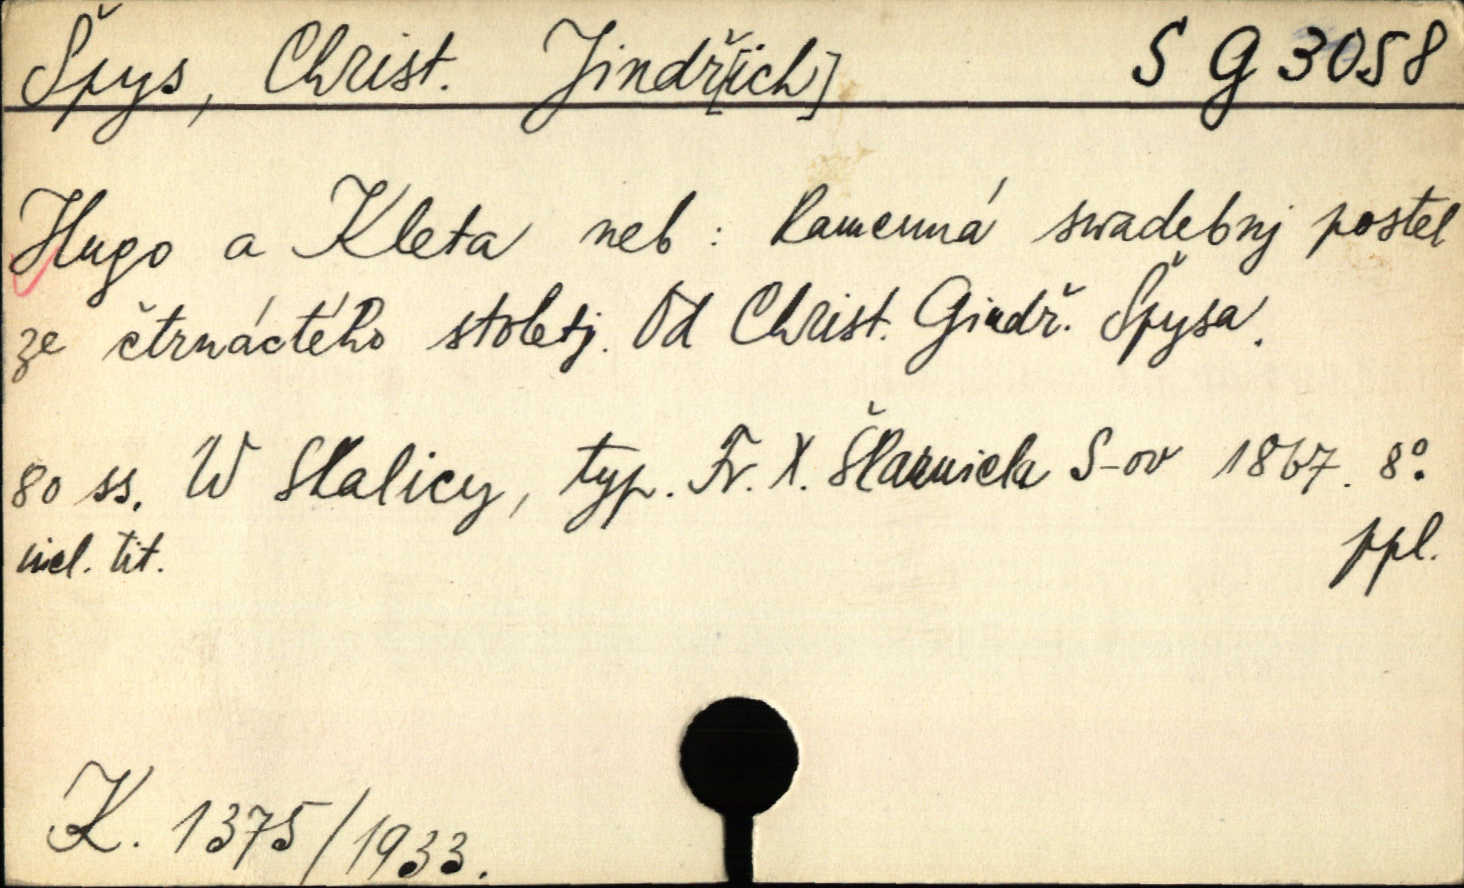 Špys, Christ. Jindř[ich] S G 3058
Hugo a Kleta neb: Kamenná swadebnj postel
ze čtrnáctého stoletj. Od Christ. Gindř. Špysa.
80 ss. W Skalicy, typ. Fr. X. Škarnicla S-ov 1867. 8°.
incl. tit. ppl.
K. 1375/1933.